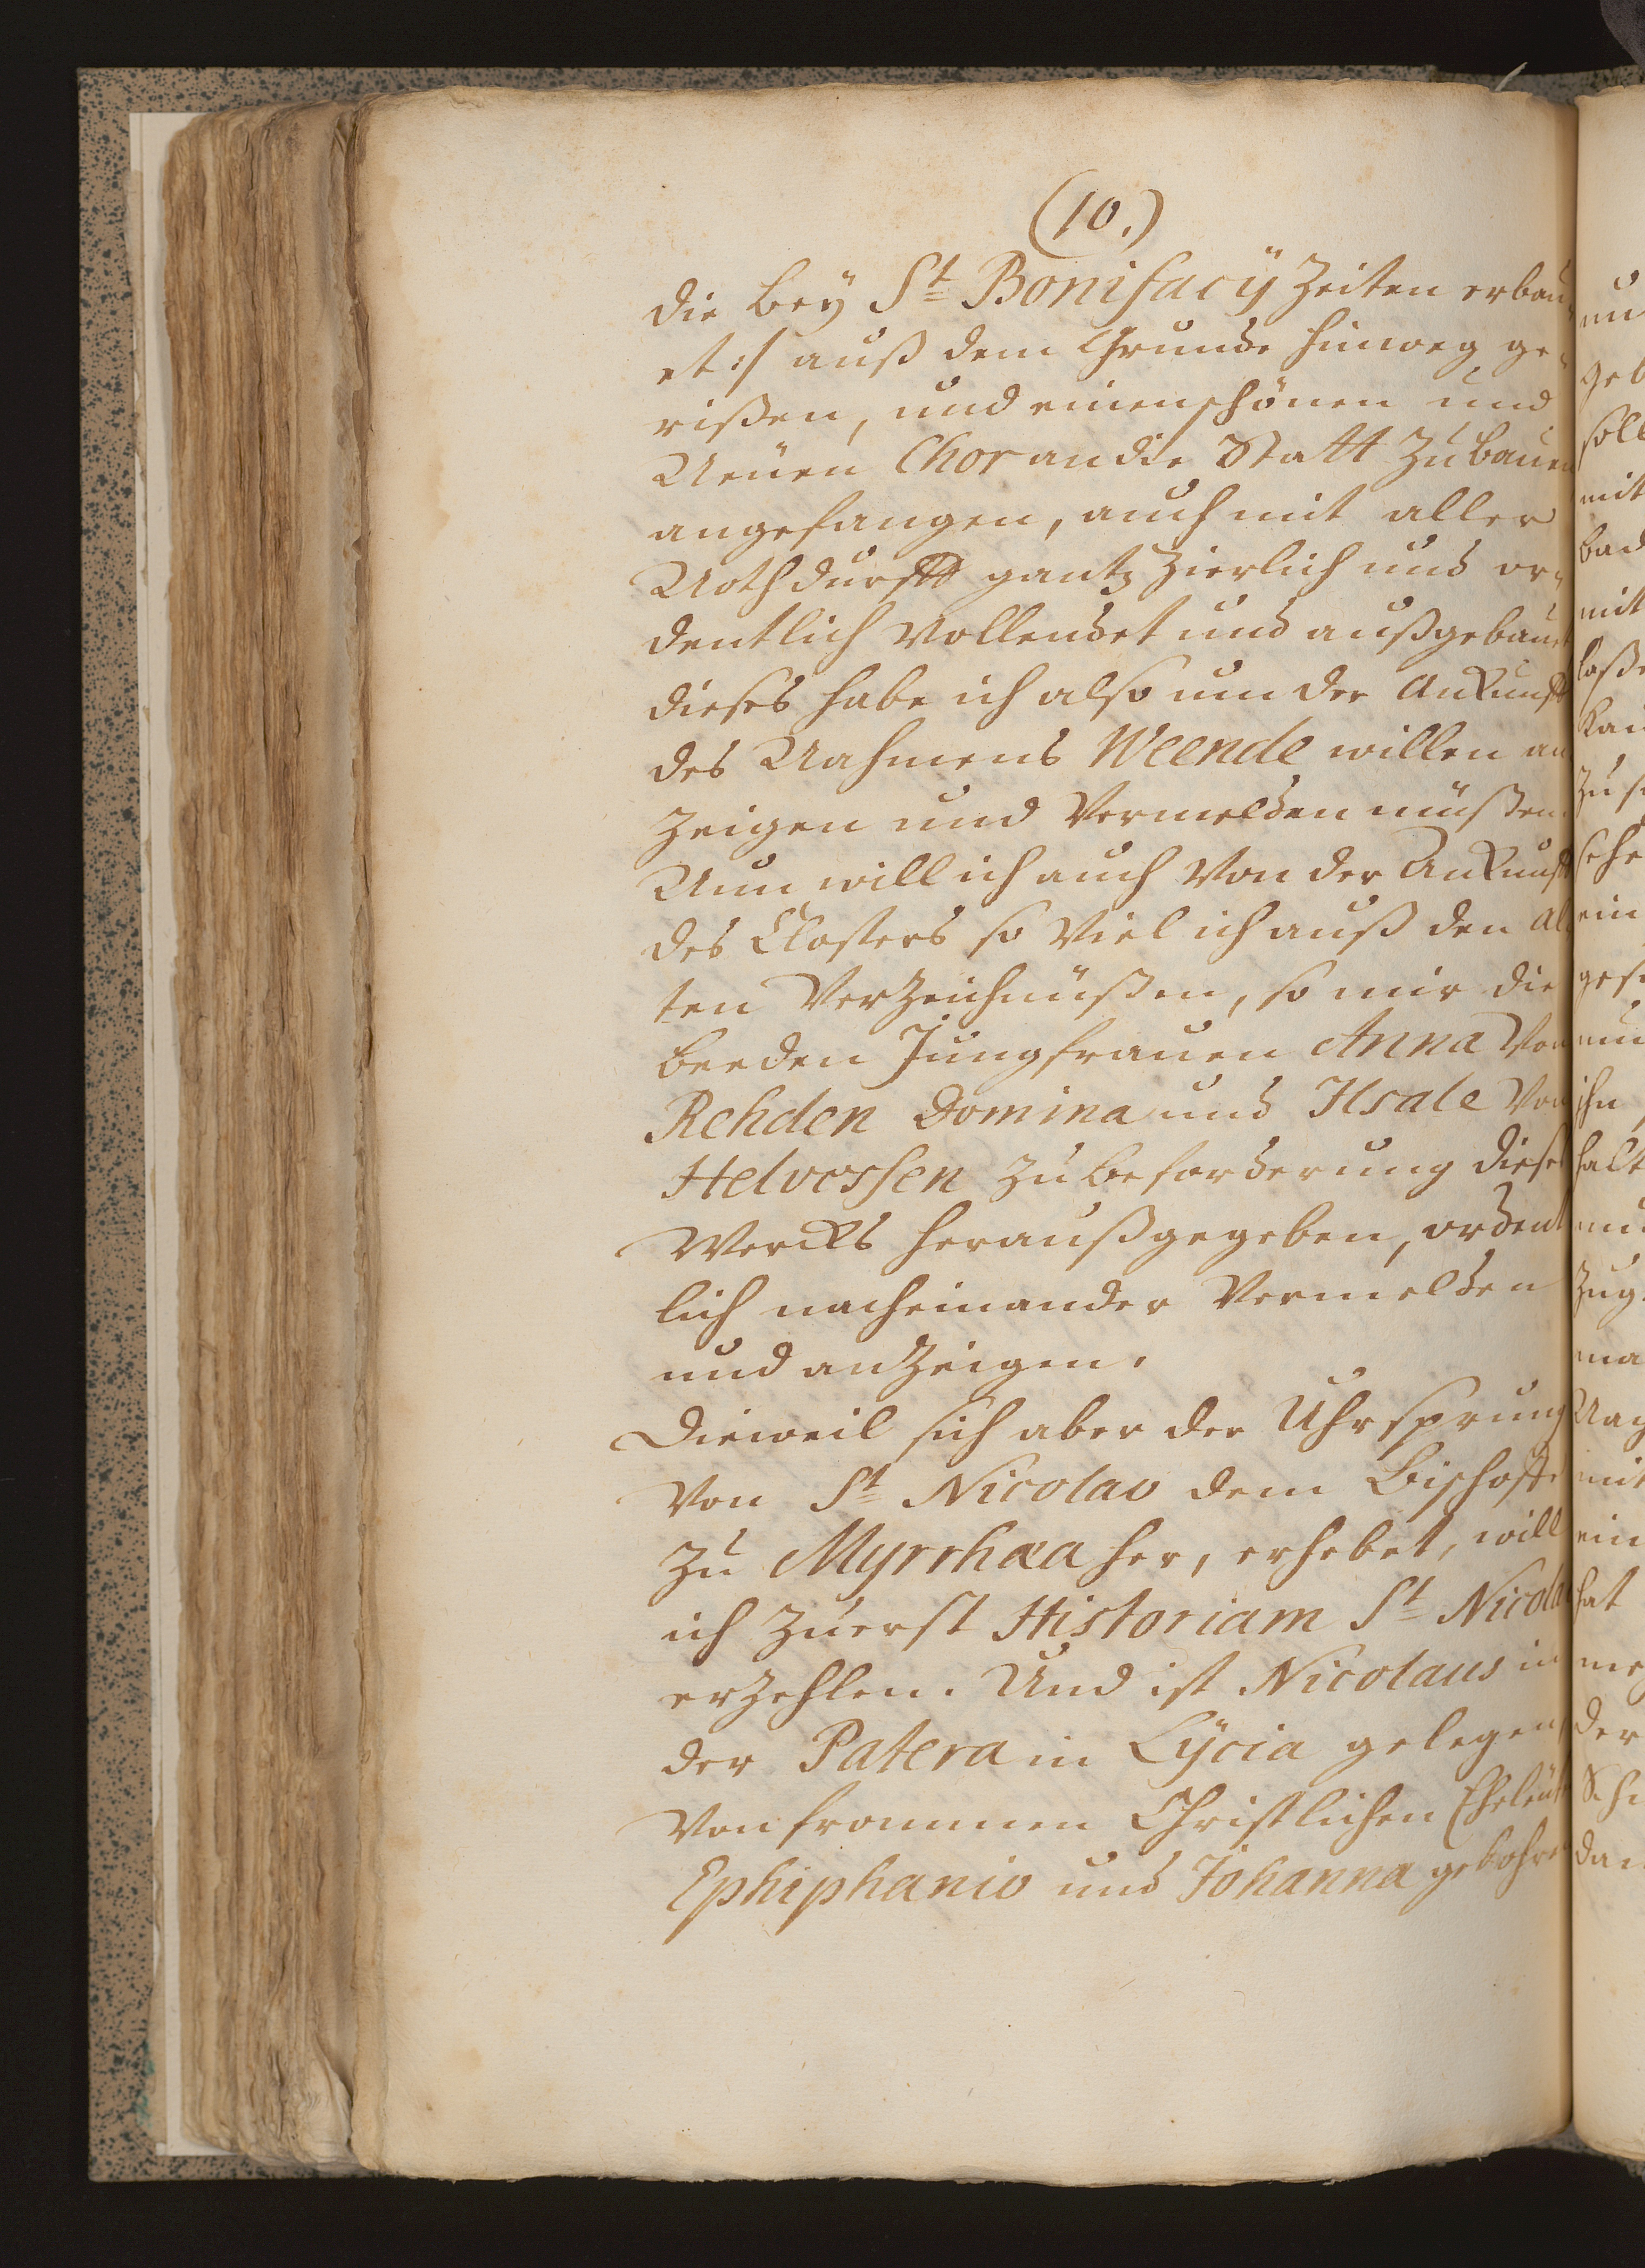 (10.)
die beÿ St Bonifacÿ Zeiten erbau
et :/ auß dem Grunde hinweg ge-
rißen, und einen schönen und
Neüen Chor an die Statt Zu bauen
angefangen, auch mit aller
Nothdurfft gantz Zierlich und or-
dentlich Vollendet und außgebauet
dieses habe ich also um der Ankunfft
des Nahmens Weende willen an
Zeigen und Vermelden müßen.
Nun will ich auch Von der Ankunfft
des Closters so Viel ich auß den al
ten VerZeichnüßen, so mir die
beeden Jungfrauen Anna Von
Rehden Domina und Ilsale Von
Helversen Zu beforderung dieses
Wercks heraußgegeben, ordent
lich nacheinander Vermelden
und anZeigen.
Dieweil sich aber der Uhrsprung
Von St Nicolao dem Bischoffe
Zu Myrrhaea her, erhebet, will
ich Zuerst Historiam St Nicolai
erZehlen. Und ist Nicolaus in
der Patera in Lÿcia gelegen
Von frommen Christlichen Eheleut
Ephiphanio und Johanna gebohren